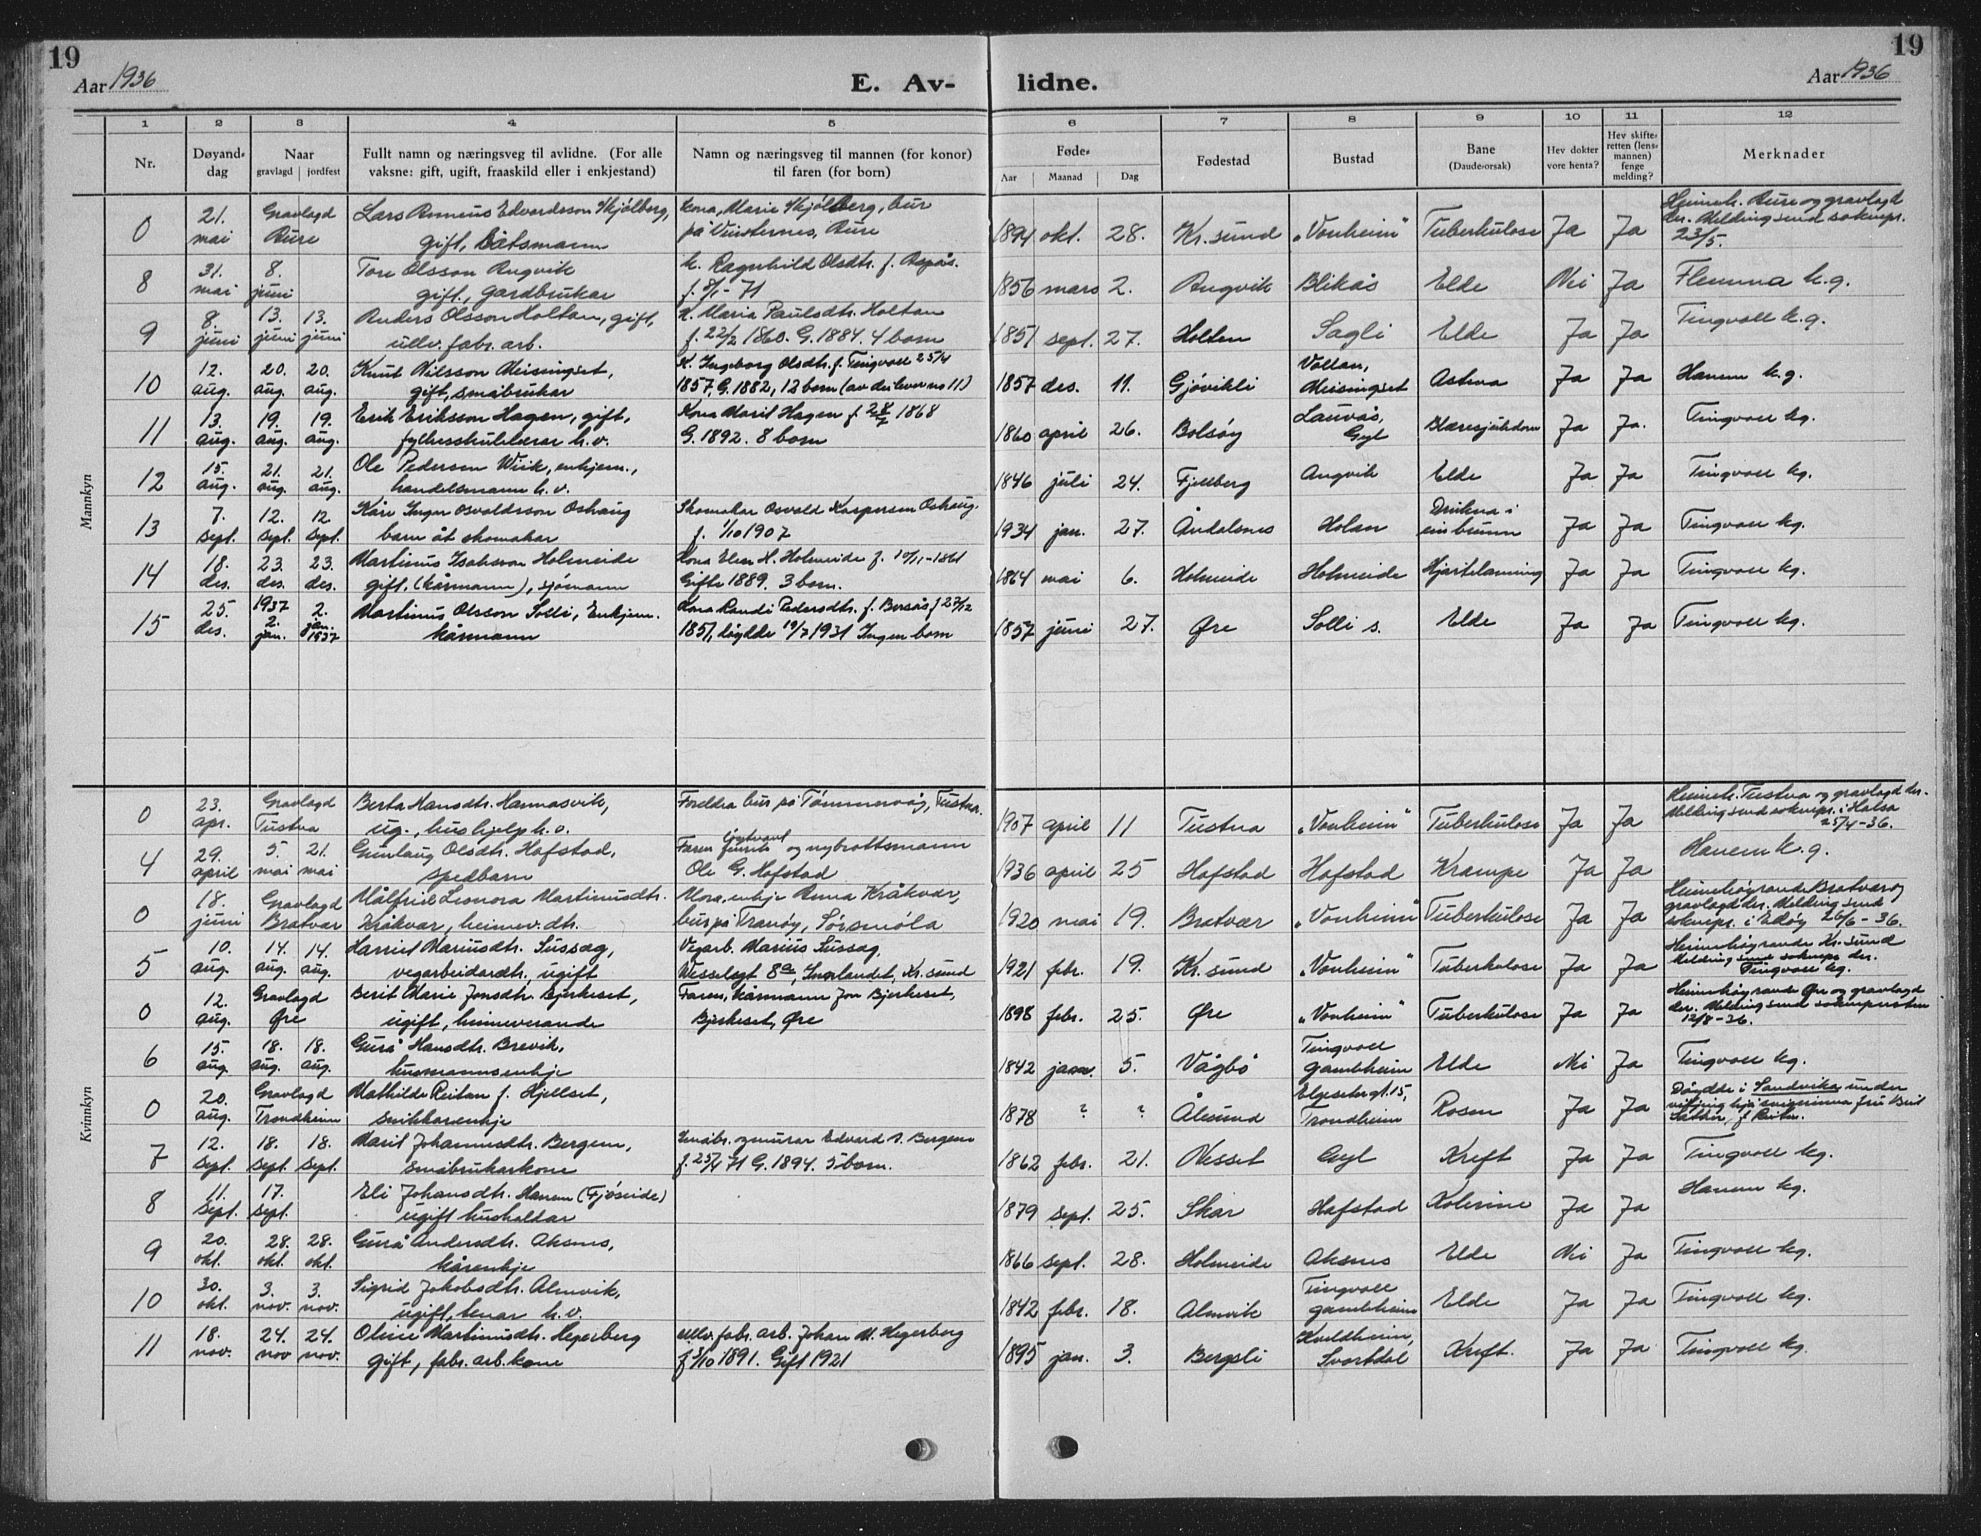 19
19
Aar 1936
E. Av-
lidne.
Aar 1936
1 2 3 4 5 6 7 8 9 10 11 12
Nr.
Døyand-
dag
Naar
gravlagd jordfest
Fullt namn og næringsveg til avlidne. (For alle
vaksne: gift, ugift, fraaskild eller i enkjestand)
Namn og næringsveg til mannen (for konor)
til faren (for born)
Føde-
Aar Maanad Dag
Fødestad
Bustad
Bane
(Daude-orsak)
Hev dokter
vore henta?
Hev skifte-
retten (lens-
mannen)
fenge
melding?
Merknader
Mannkyn
0 21. Gravlagd Lars Edvardsson Skjölberg, Kona, Marie Skjölberg, bur Heimeh. Aure og gravlagd
mai Aure gift, båtsmann på Aure 1894 okt. 28. Kr.sund "Vonheim" Tuberkulose Ja Ja der. Melding send soknepr.
23/5.
8 31. 8. Tore Olsson Angvik k. Ragnhild Olsdtr. f. Aspås.
mai juni gift, gardbrukar f. 8/1-71 1856 mars 2. Angvik Blikås Elde Nei Ja Flemma k.g.
9 8. 13. 13. Anders Olsson Holtan, gift, K. Maria Paulsdtr. Holtan
juni juni juni ullv. fabr. arb. f. 22/2 1860. G. 1884. 4 born 1851 sept. 27. Holten Sagli Elde Ja Ja Tingvoll k.g.
10 12. 20. 20. Knut Nilsson Meisingset, K. Ingeborg Olsdtr. f. Tingvoll 25/4 Vollan,
aug. aug. aug. gift, småbrukar 1857, G. 1882, 12 born (av dei lever no 11) 1857 des. 11. Gjøvikli Meisingset Astma Ja Ja Hanem k.g.
11 13. 19. 19. Erik Eriksson Hagen, gift, Kona Marit Hagen f. 1868 Lauvås,
aug. aug. aug. fylkesskulelærar h.v. G. 1892. 8 born 1860 april 26. Bolsøy Gyl Blæresjukdom Ja Ja. Tingvoll kg.
12 15. 21. 21. Ole Pedersen Wiik, enkjem.,
aug. aug. aug. handelsmann h.v. 1846 juli 24. Fjellberg Angvik Elde Ja Ja Tingvoll kg.
13 7. 12. 12 Kåre Inger Osvaldsson Oshaug Skomakar Osvald Kaspersen Oshaug. Drukna i
sept. sept. sept. barn åt skomakar f. 1/10 1907 1934 jan. 27. Åndalsnes Holan ein brunn Ja Ja Tingvoll kg.
14 18. 23. 23. Martinus Isaksson Holmeide Kona Elen H. Holmeide f. 10/1-1861
des. des. des. gift. (kårmann), sjömann Gifte 1889. 3 born. 1864 mai 6. Holmeide Holmeide Hjartelamming Ja Ja Tingvoll kg.
15 25. 1937 2. Martinus Olsson Solli, Enkjem. Kona Randi Pedersdtr. f. Bersås f 27/12
des. 2. jan. jan. 1937 kårmann 1851, døydde 19/7 1931 Ingen born 1857 juni 27. Øre Solli s. Elde Ja Ja Tingvoll kg.
Kvinnkyn
0 23. Gravlagd Berta Hansdtr. Hannasvik, Foreldra bur på Tømmervåg, Tustna. Heimeh. Tustna og gravlagd der.
apr. Tustna ug., hushjelp h.v. 1907 april 11 Tustna "Vonheim" Tuberkulose Ja Ja Melding send soknepr. i Halsa
25/4-36.
4 29. 5. 21. Gunlaug Olsdtr. Hofstad, Faren og nybrottsmann
april mai mai spedbarn Ole G. Hofstad 1936 april 25 Hofstad Hofstad Krampe Ja Ja Hanem k.g.
0 18. Gravlagd Målfrid Leonora Martinusdtr. Mora, enkje Anna Kråkvær, Heimehøyrande Bratvær og
juni Bratvær Kråkvær, heimev. dtr. bur på Tranøy, Sørsmöla 1920 mai 19. Bratvær "Vonheim" Tuberkulose Ja Ja gravlagd der. Melding send
soknepr. i Edøy 26/6-36.
5 10. 14. 14. Harriet Mariusdtr. Sussag, Vegarb. Marius Sussag, Heimehøyrande Kr. sund
aug. aug. aug. vegarbeidardtr. ugift Wesselsgt 8a, Innlandet, Kr. sund 1921 febr. 19. Kr. sund "Vonheim" Tuberkulose Ja Ja Melding send soknepr der.
Tingvoll kg.
0 12. Gravlagd Berit Marie Jonsdtr. Bjerkeset, Faren, kårmann Jon Bjerkeset, Heimehøyrande Øre og gravlagd
aug. Øre ugift, heimeverande Bjerkeset, Øre 1898 febr. 25. Øre "Vonheim" Tuberkulose Ja Ja der. Melding send soknepresten
12/8-36.
6 15. 18. 18. Gurå Hansdtr. Brevik, Tingvoll
aug. aug. aug. husmannsenkje 1842 jan. 5. Vågbø gamleheim Elde Nei Ja Tingvoll kg.
0 20. Gravlagd Mathilde Reitan f. Hjellset, Elgesetergt. 15, Døydde i Sandvika under
aug. Trondheim snikkarenkje 1878 ? ? Ålesund Trondheim Rosen Ja Ja vitjing hjå fru
7 12. 18. 18. Marit Johannesdtr. Bergem, Småbr. og murar Edvard Bergem
sept. sept. sept. småbrukarkone f. 25/4 71 G. 1894. 5 born. 1862 febr. 21. Nesset Gyl Kreft Ja Ja Tingvoll kg.
8 11. 17. Eli Johansdtr. Hanem (Fjøseide) Hanem kg.
sept. sept. ugift hushaldar 1879 sept. 25. Skar Hofstad Kolerine Ja Ja
9 20. 28. 28. Gurå Andersdtr. Aksnes,
okt. okt. okt. kårenkje 1866 sept. 28. Holmeide Aksnes Elde Nei Ja Tingvoll kg.
10 30. 3. 3. Sigrid Jakobsdtr. Almvik, Tingvoll
okt. nov. nov. ugift, tenar h.v. 1842 febr. 18. Almvik gamleheim Elde Ja Ja Tingvoll kg.
11 18. 24. 24. Oline Martinusdtr. Hegerberg Ullv. fabr. arb. Johan M. Hegerberg Kveldheim,
nov. nov nov. gift, fabr. arb. kone f 3/10 1891. Gift 1921 1895 jan. 3. Bergsli Svartdal Kreft. Ja Ja Tingvoll kg.